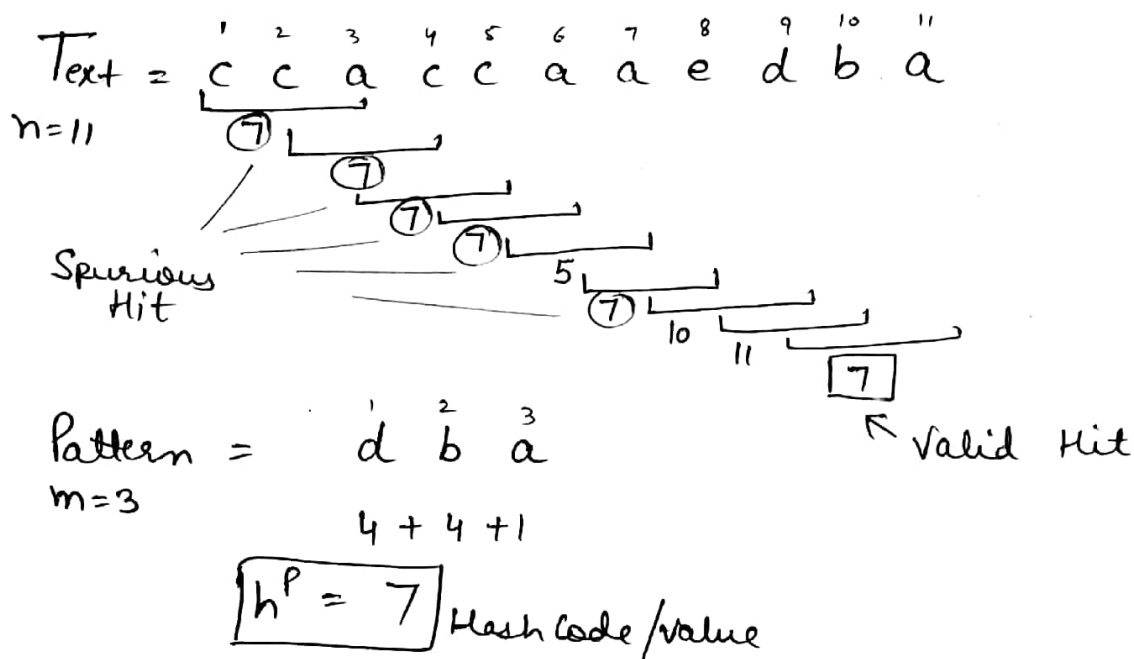 1 2 3 4 5 6 7 8 9 10 11
Text = c c a c c a a e d b a
n=11
7
7
7
7
5
7
10
11
7
Spurious
Hit
Valid Hit
1 2 3
Pattern = d b a
m=3
4 + 4 + 1
h^p = 7 Hash Code/value